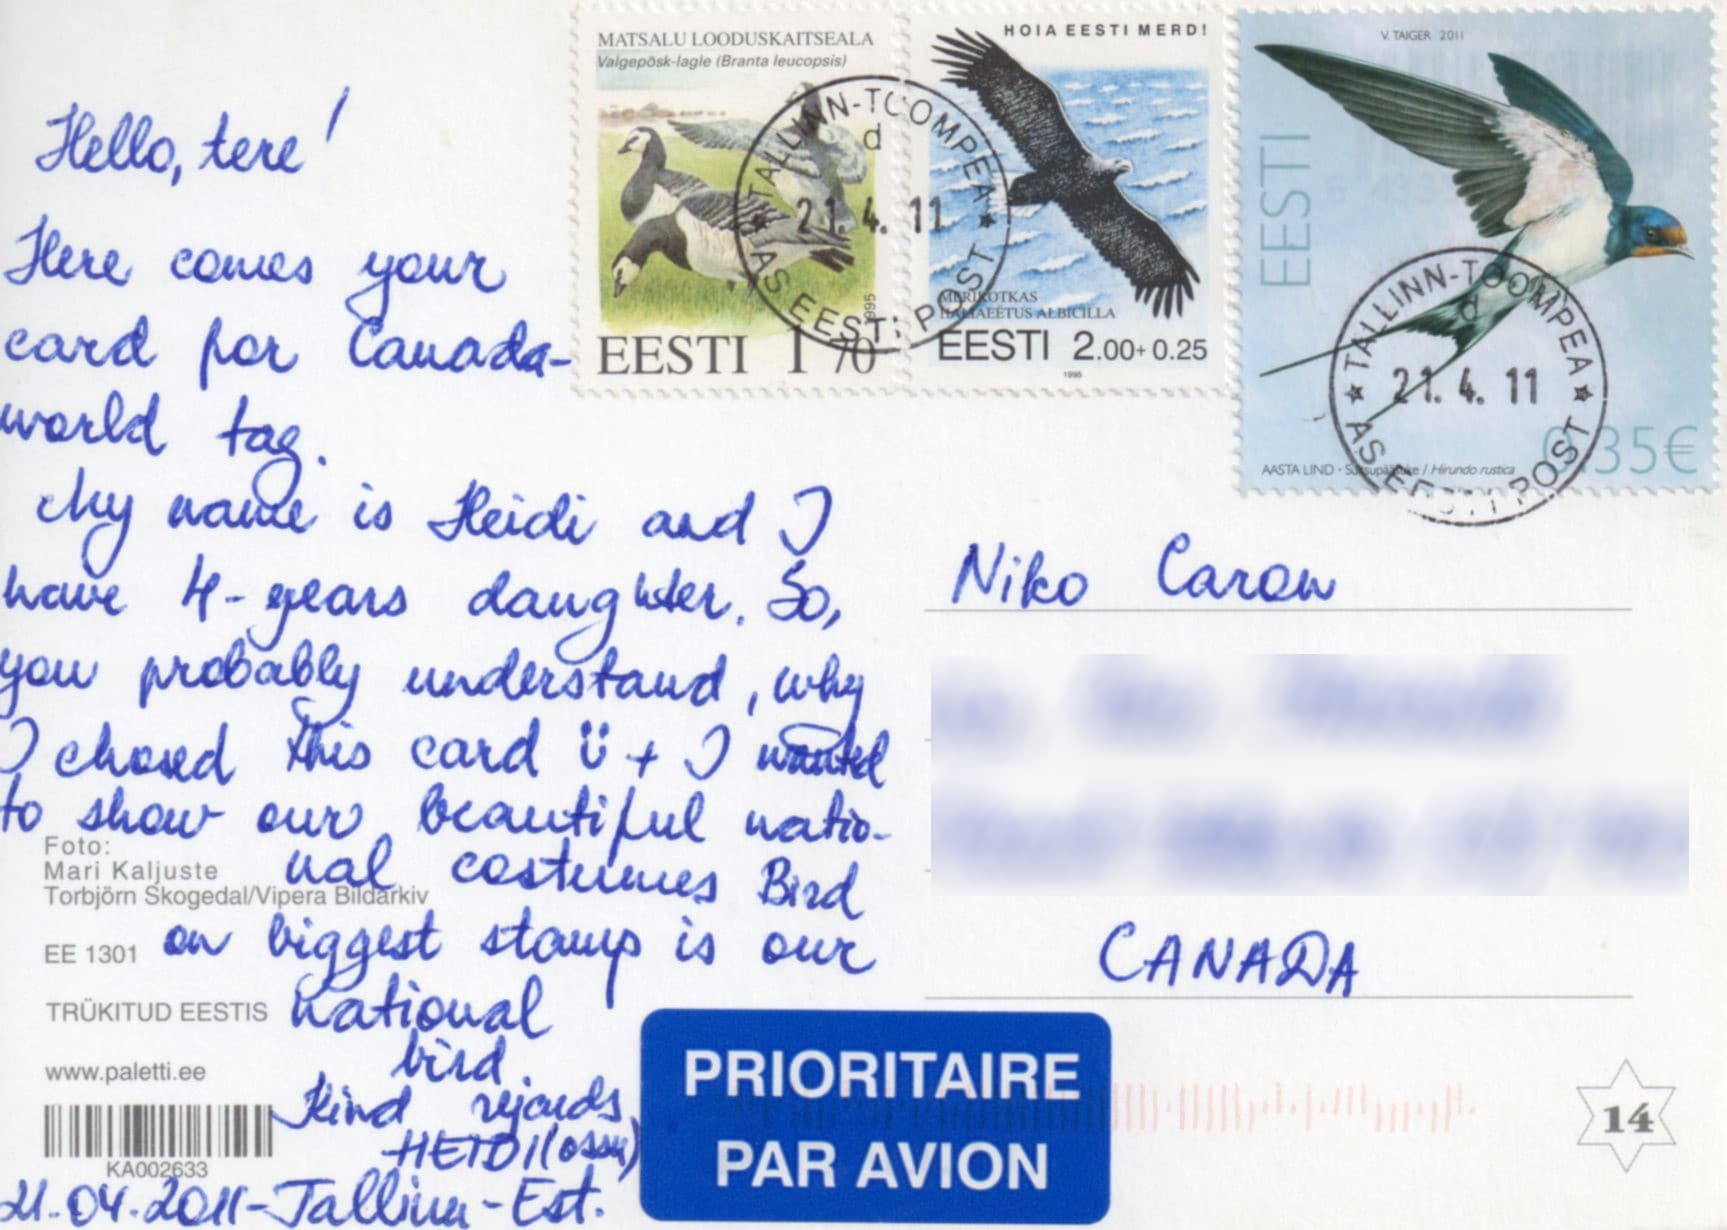 MATSALU LOODUSKAITSEALA
Valgepõsk-lagle (Branta leucopsis)
1995
EESTI 1 70
HOIA EESTI MERD!
MERIKOTKAS
HALIAEËTUS ALBICILLA
EESTI 2.00+0.25
1995
V. TAIGER 2011
EESTI
0.35€
AASTA LIND • Suitsupääsuke / Hirundo rustica
TALLINN-TOOMPEA
d
21.4.11
AS EESTI POST
TALLINN-TOOMPEA
d
21.4.11
AS EESTI POST
Hello, tere!
Here comes your
card for Canada-
world tag.
My name is Heidi and I
have 4-years daughter. So,
you probably understand, why
I chosed this card ü + I wanted
to show our beautiful natio-
nal costumes Bird
on biggest stamp is our
national
bird.
Kind regards,
HEIDI (ossu)
21.04.2011-Tallinn-Est.
Foto:
Mari Kaljuste
Torbjörn Skogedal/Vipera Bildarkiv
EE 1301
TRÜKITUD EESTIS
www.paletti.ee
KA002633
Niko Caron
CANADA
PRIORITAIRE
PAR AVION
14